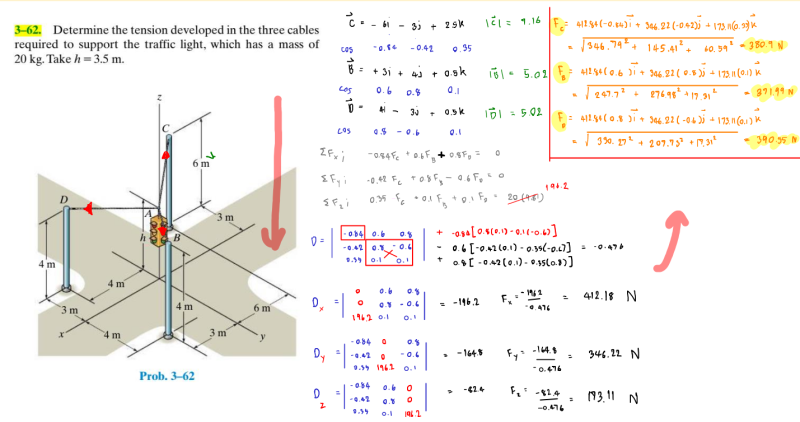 3–62. Determine the tension developed in the three cables
required to support the traffic light, which has a mass of
20 kg. Take h = 3.5 m.
z
C
6 m
D
A
3 m
h
B
4 m
4 m
3 m
4 m
6 m
x
4 m
3 m
y
Prob. 3–62
C = - 6i - 3j + 2.5k |C| = 7.16
cos -0.84 -0.42 0.35
B = +3i + 4j + 0.5k |B| = 5.02
cos 0.6 0.8 0.1
D = 4i - 3j + 0.5k |D| = 5.02
cos 0.8 -0.6 0.1
ΣFx; -0.84Fc + 0.6FB + 0.8FD = 0
ΣFy; -0.42 Fc + 0.8 FB - 0.6 FD = 0
196.2
ΣFz; 0.35 Fc + 0.1 FB + 0.1 FD = 20 (9.81)
D = | -0.84 0.6 0.8 | + -0.84[0.8(0.1) - 0.1(-0.6)]
| -0.42 0.8 -0.6 | - 0.6 [-0.42(0.1) - 0.35(-0.6)] = -0.476
| 0.35 0.1 0.1 | + 0.8 [-0.42(0.1) - 0.35(0.8)]
Dx = | 0 0.6 0.8 |
| 0 0.8 -0.6 | = -196.2 Fx = -196.2 / -0.476 = 412.18 N
| 196.2 0.1 0.1 |
Dy = | -0.84 0 0.8 |
| -0.42 0 -0.6 | = -164.8 Fy = -164.8 / -0.476 = 346.22 N
| 0.35 196.2 0.1 |
D z = | -0.84 0.6 0 |
| -0.42 0.8 0 | = -82.4 Fz = -82.4 / -0.476 = 173.11 N
| 0.35 0.1 196.2 |
Fc = 412.84(-0.84)i + 346.22(-0.42)j + 173.11(0.35)k
= √346.79² + 145.41² + 60.59² = 380.9 N
FB = 412.84(0.6)i + 346.22(0.8)j + 173.11(0.1)k
= √247.7² + 276.98² + 17.31² = 371.99 N
FD = 412.84(0.8)i + 346.22(-0.6)j + 173.11(0.1)k
= √330.27² + 207.73² + 17.31² = 390.55 N